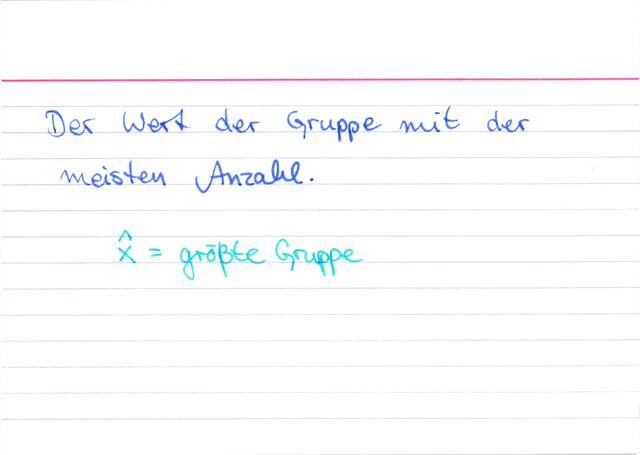 Der Wert der Gruppe mit der
meisten Anzahl.
x̂ = größte Gruppe